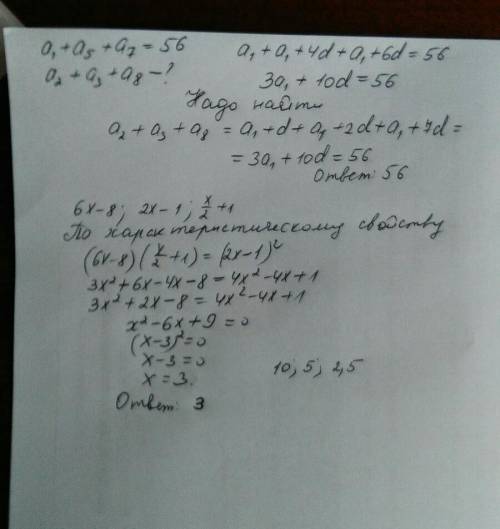 a₁ + a₅ + a₇ = 56
a₂ + a₃ + a₈ - ?
a₁ + a₁ + 4d + a₁ + 6d = 56
3a₁ + 10d = 56
Надо найти
a₂ + a₃ + a₈ = a₁ + d + a₁ + 2d + a₁ + 7d =
= 3a₁ + 10d = 56
Ответ: 56
6x-8; 2x-1; x/2 + 1
По характеристическому свойству
(6x-8)(x/2 + 1) = (2x-1)²
3x² + 6x - 4x - 8 = 4x² - 4x + 1
3x² + 2x - 8 = 4x² - 4x + 1
x² - 6x + 9 = 0
(x-3)² = 0
x - 3 = 0
x = 3.
10; 5; 2,5
Ответ: 3